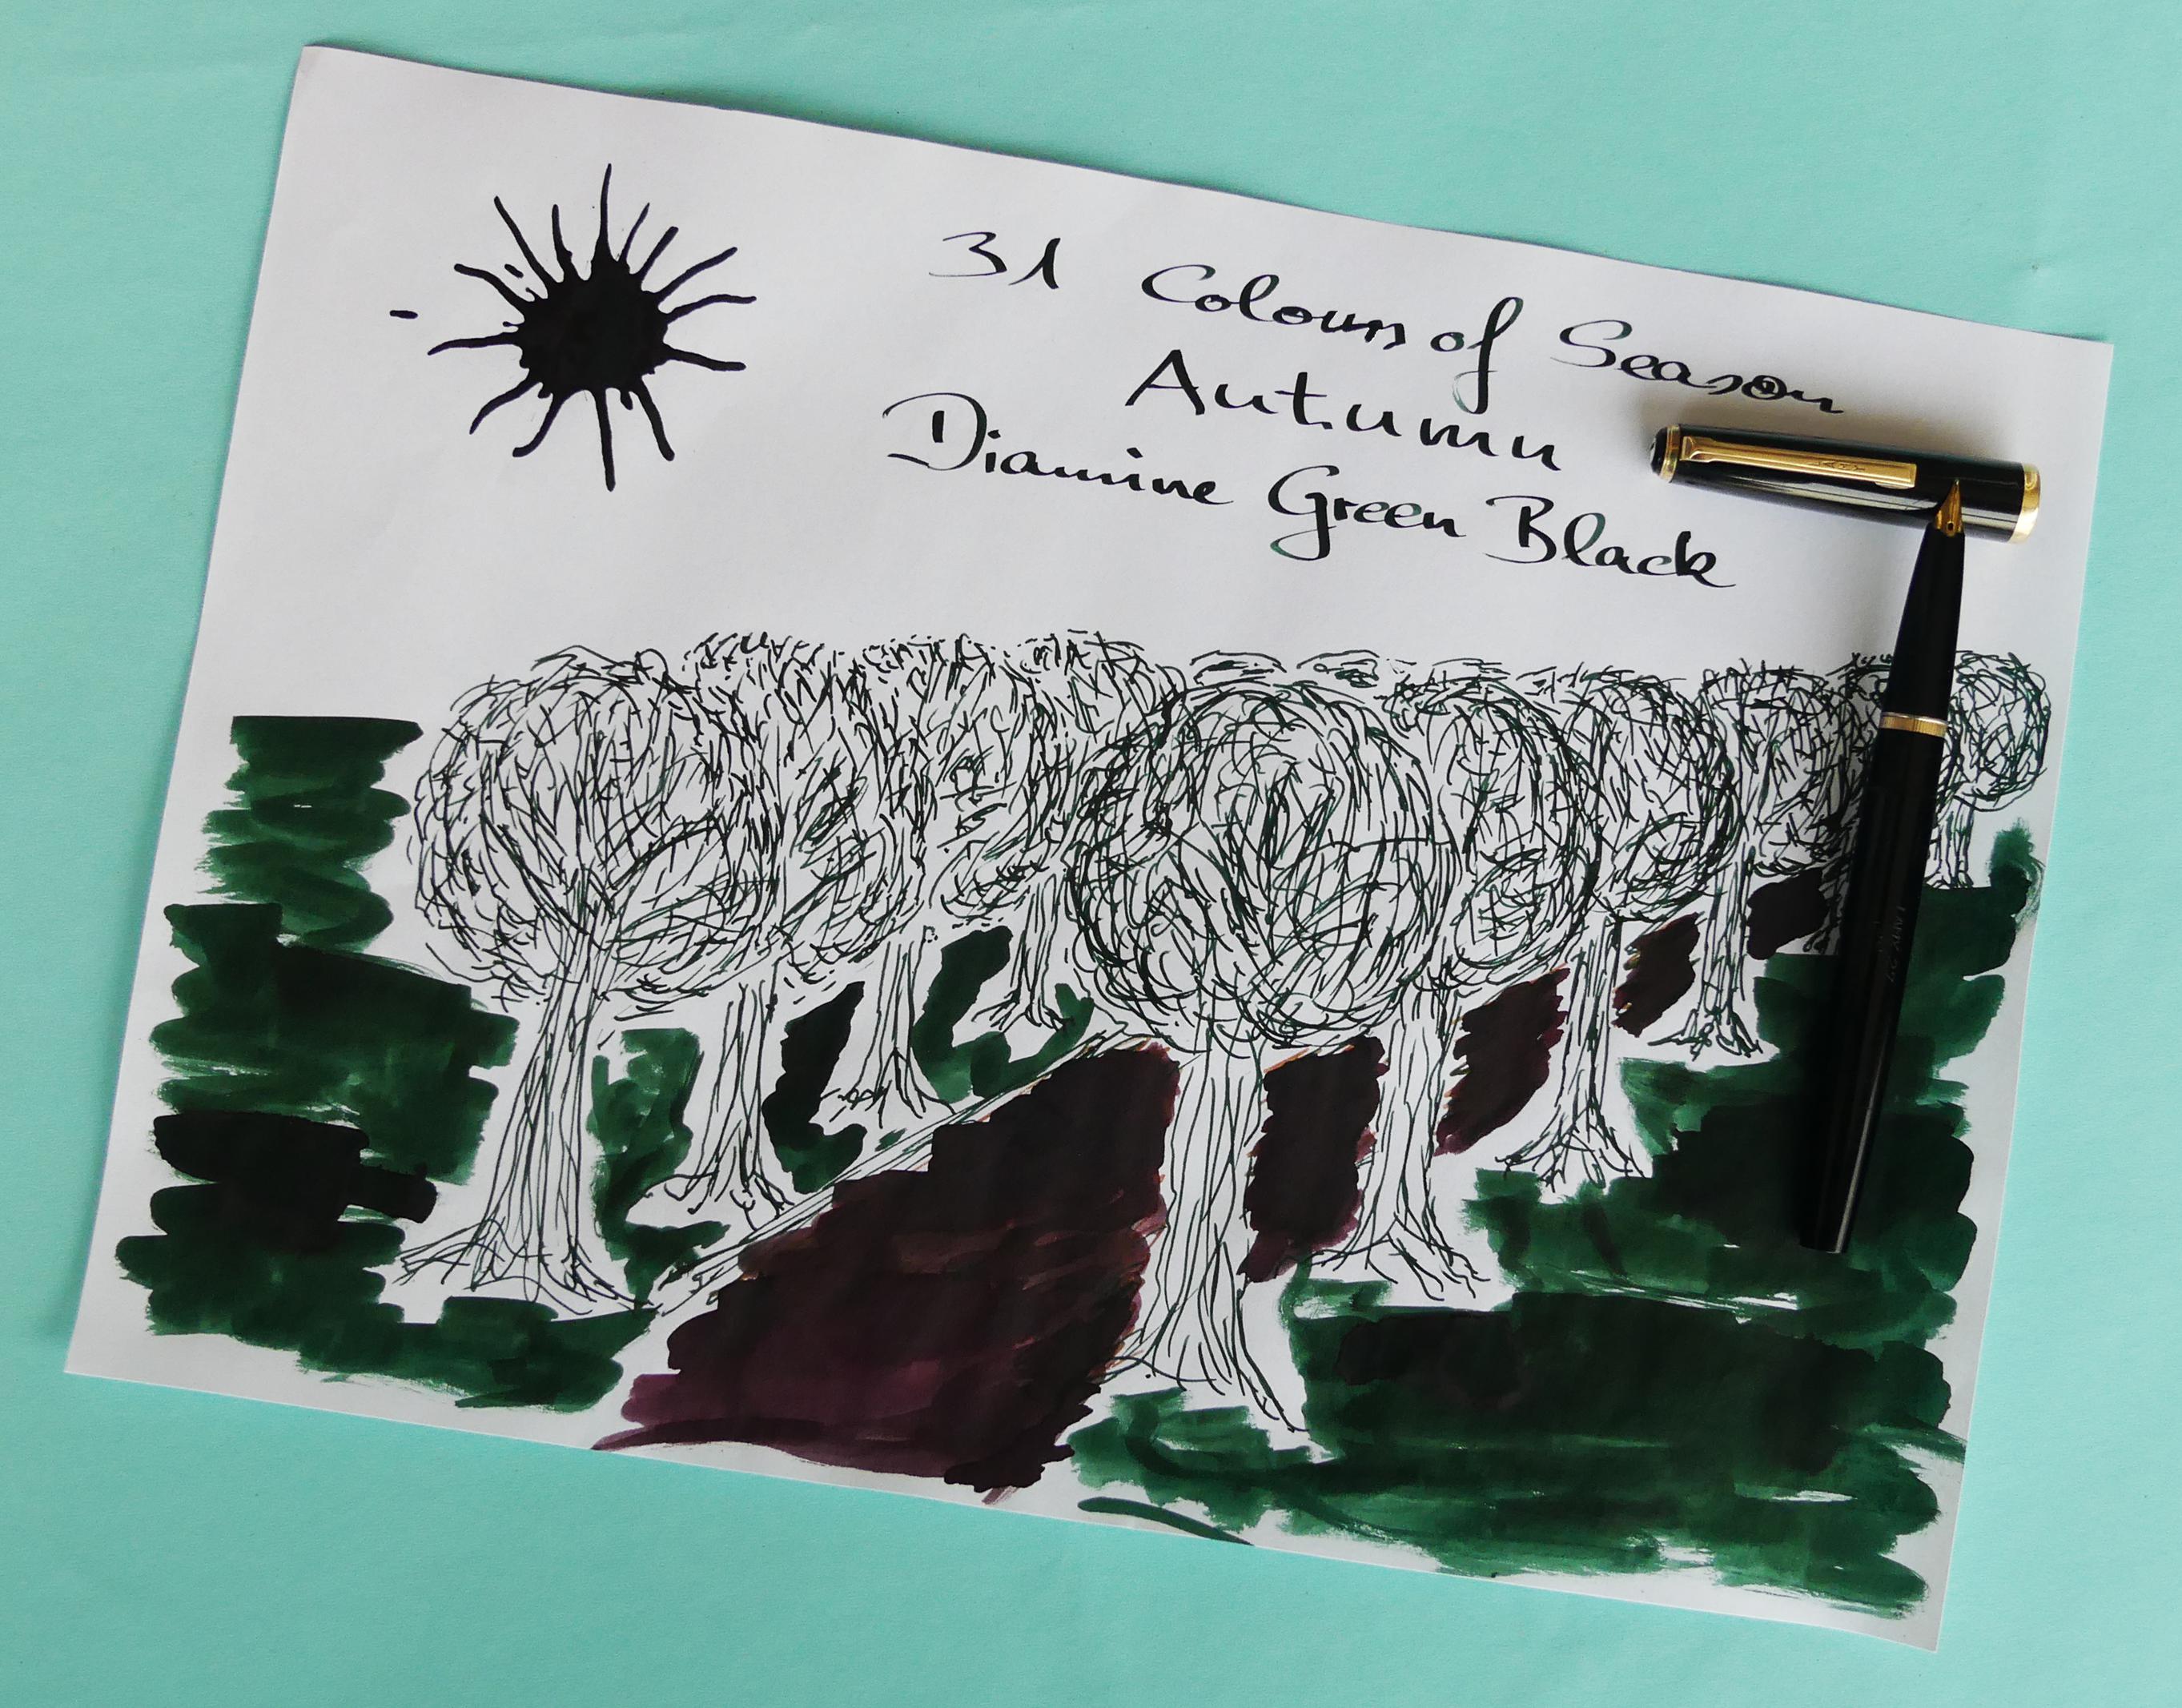 31 Colours of Season
Autumn
Diamine Green Black